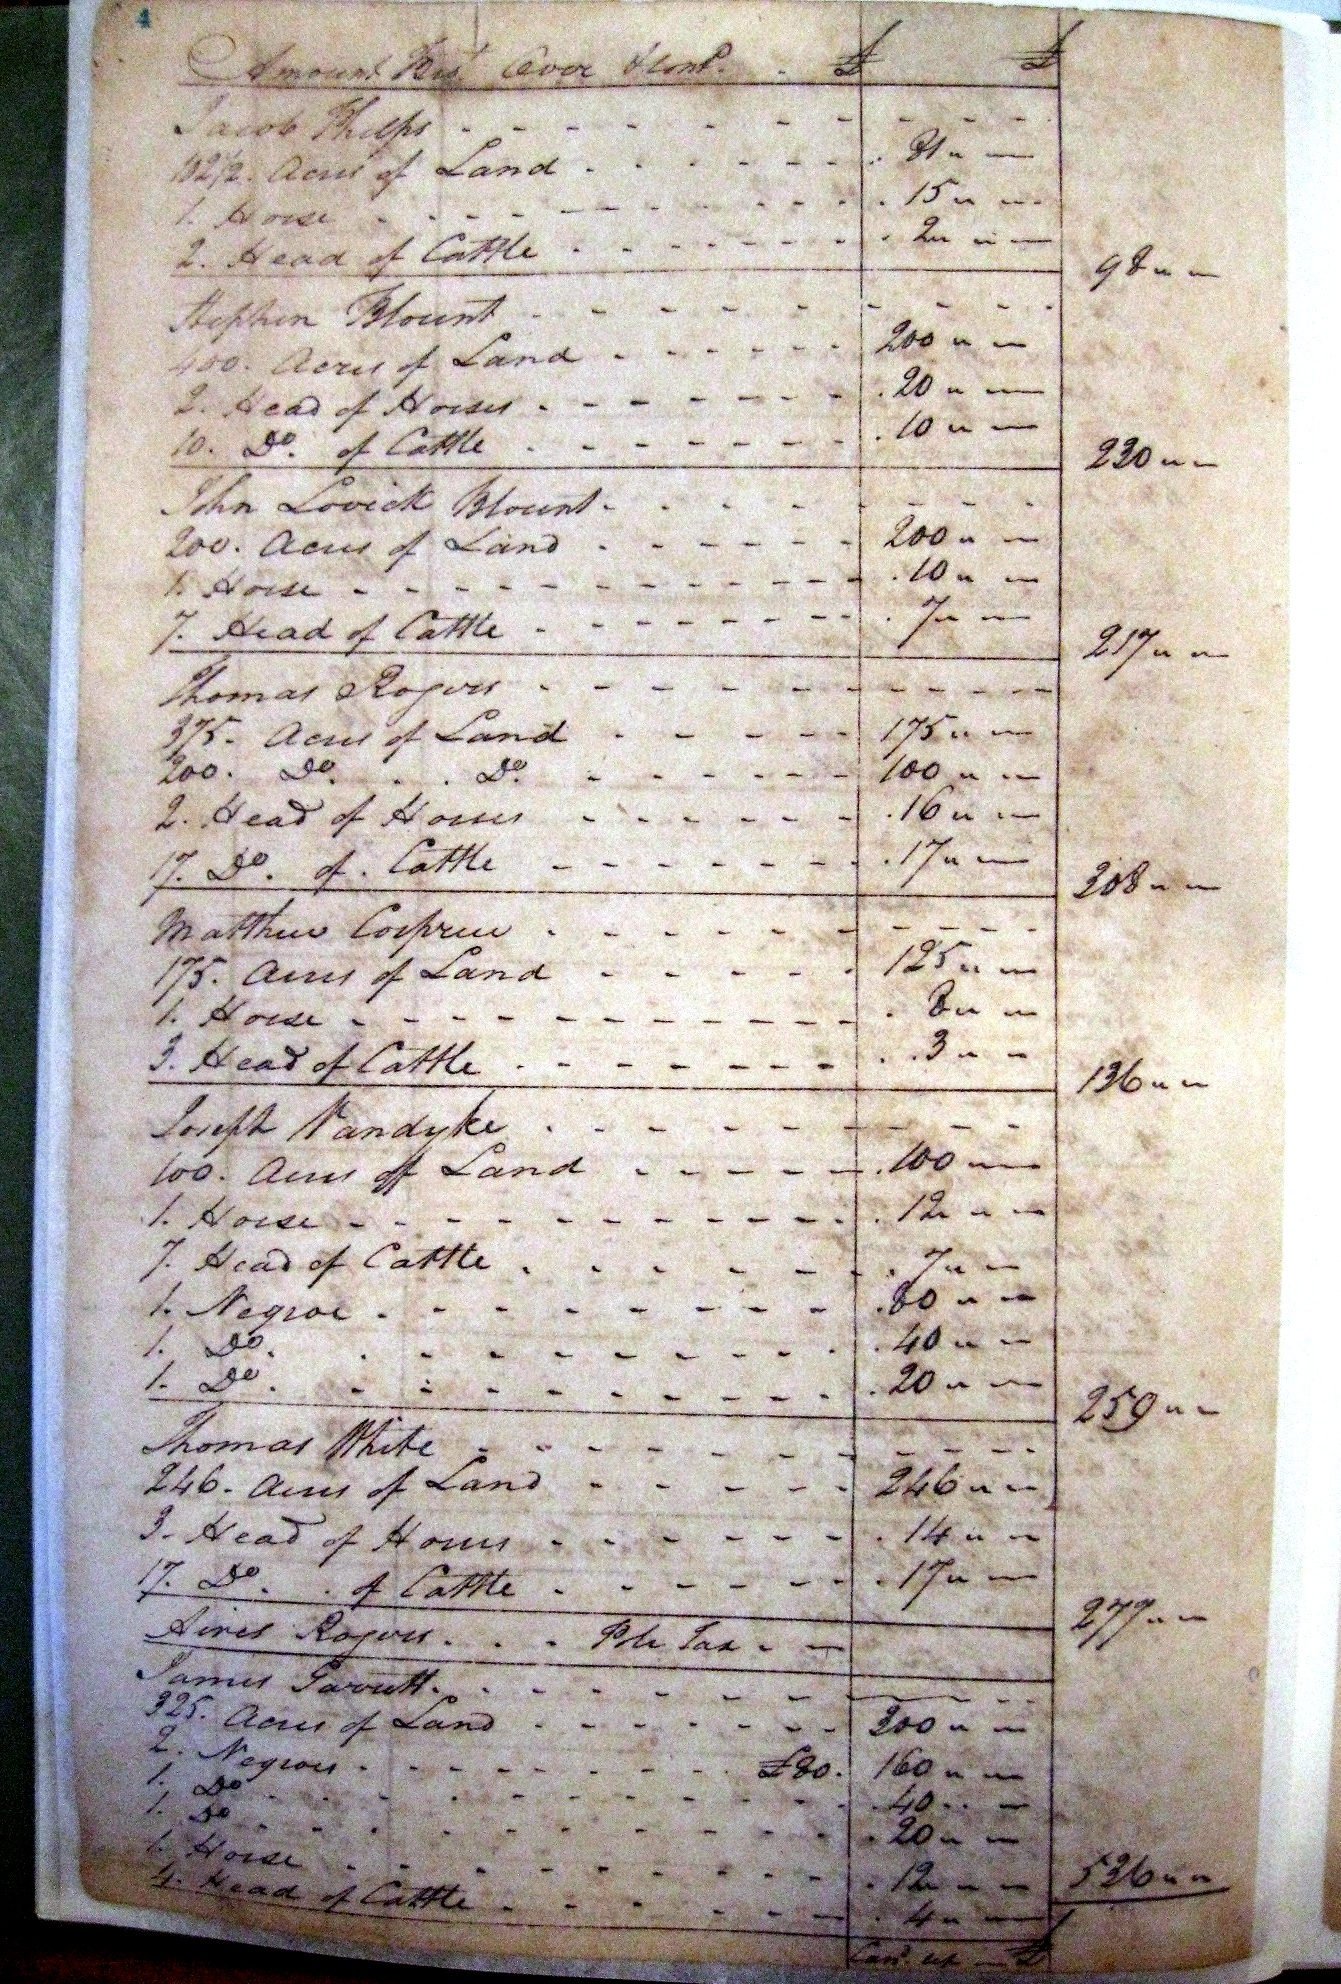 4
Amount Over £ £
Jacob Phelps - - - - - - - - - -
182½. Acres of Land - - - - - 81 " "
1. Horse - - - - - - - - - 15 " "
2. Head of Cattle - - - - - - 2 " " 98 " "
Stephen Blount - - - - - - - - -
400. Acres of Land - - - - - 200 " "
2. Head of Horses - - - - - - 20 " "
10. Do. of Cattle - - - - - - 10 " " 230 " "
John Lovick Blount - - - - - - -
200. Acres of Land - - - - - 200 " "
1. Horse - - - - - - - - - 10 " "
7. Head of Cattle - - - - - - 7 " " 217 " "
Thomas Rogers - - - - - - - - -
375. Acres of Land - - - - - 175 " "
200. Do. . . Do. - - - - - 100 " "
2. Head of Horses - - - - - 16 " "
17. Do. of. Cattle - - - - - - 17 " " 308 " "
Matthew Cosprew - - - - - - - -
175. Acres of Land - - - - - 125 " "
1. Horse - - - - - - - - - 8 " "
3. Head of Cattle - - - - - - 3 " " 136 " "
Joseph Vandyke - - - - - - - -
100. Acres off Land - - - - - 100 " "
1. Horse - - - - - - - - - 12 " "
7. Head of Cattle - - - - - - 7 " "
1. Negroe - - - - - - - - 80 " "
1. Do. - - - - - - - - - 40 " "
1. Do. - - - - - - - - - 20 " " 259 " "
Thomas White - - - - - - - - -
246. Acres of Land - - - - - 246 " "
3. Head of Horses - - - - - 14 " "
17. Do. . of Cattle - - - - - 17 " " 277 " "
Aires Rogers. . . Pole Tax - -
James Garrett. - - - - - - - -
325. Acres of Land - - - - - 300 " "
2. Negroes - - - - - - £80. 160 " "
1. Do - - - - - - - - - 40 " "
1. Do - - - - - - - - - 20 " "
1. Horse - - - - - - - - - 12 " "
4. Head of Cattle - - - - - - 4 " " 536 " "
Card. up £